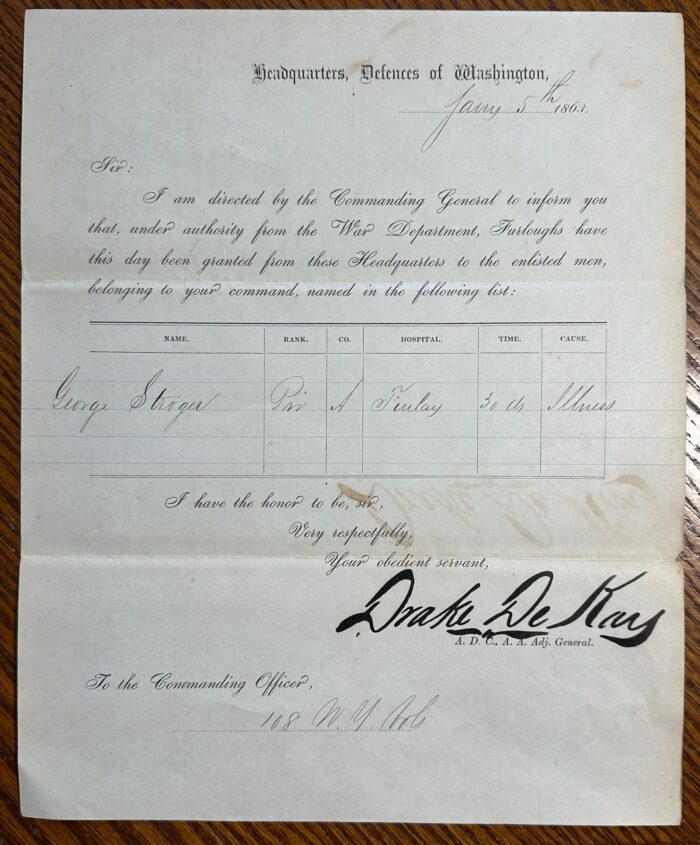 Headquarters, Defences of Washington,
Jany 5th 1863.
Sir:
I am directed by the Commanding General to inform you
that, under authority from the War Department, Furloughs have
this day been granted from these Headquarters to the enlisted men,
belonging to your command, named in the following list:
NAME. RANK. CO. HOSPITAL. TIME. CAUSE.
George Stroger Priv A Finlay 30 ds Illness
I have the honor to be, sir,
Very respectfully,
Your obedient servant,
Drake De Kay
A. D. C., A. A. Adj. General.
To the Commanding Officer,
108 N. Y. Vols